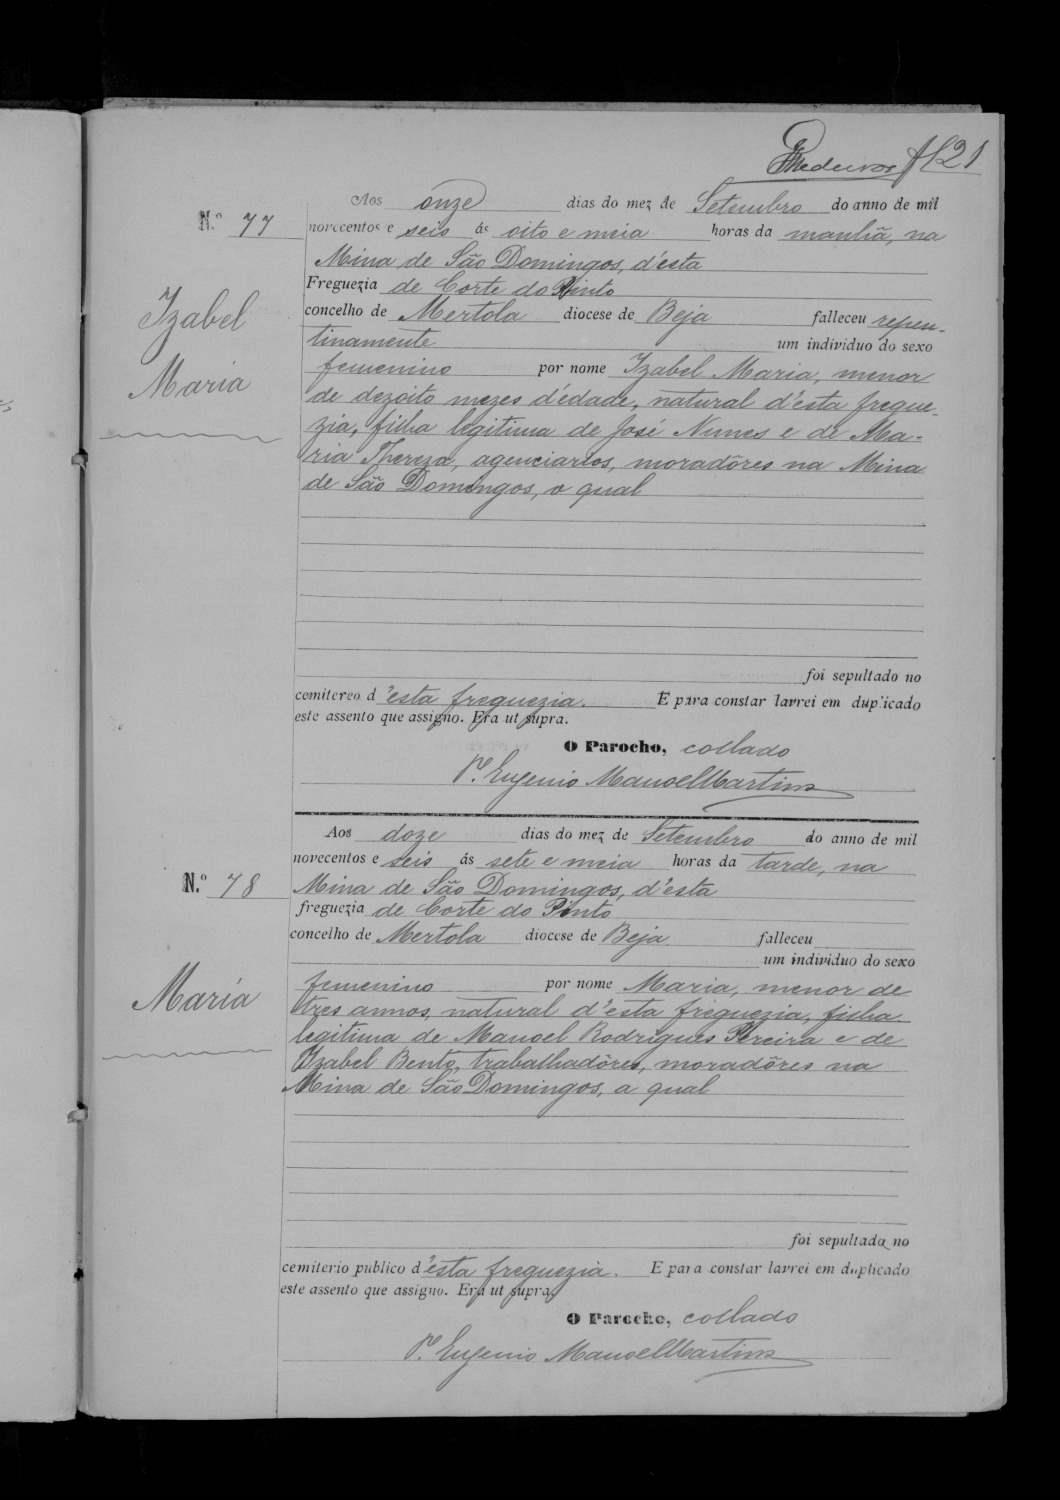 Medeiros fl 21
Aos onze dias do mez de Setembro do anno de mil
N.º 77
novecentos e seis ás oito e meia horas da manhã, na
Mina de São Domingos, d'esta
Freguezia de Corte do Pinto
concelho de Mertola diocese de Beja falleceu repen-
tinamente um individuo do sexo
Izabel
Maria
femenino por nome Izabel Maria, menor
de dezoito mezes d'édade, natural d'esta fregue-
zia, filha legitima de José Nunes e de Ma-
ria Thereza, agenciarios, moradôres na Mina
de São Domingos, o qual
foi sepultado no
cemitereo d'esta freguezia. E para constar lavrei em duplicado
este assento que assigno. Era ut supra.
O Parocho, collado
P.e Eugenio Manoel Martins
Aos doze dias do mez de Setembro do anno de mil
novecentos e seis ás sete e meia horas da tarde, na
N.º 78
Mina de São Domingos, d'esta
freguezia de Corte do Pinto
concelho de Mertola diocese de Beja falleceu
um individuo do sexo
Maria
femenino por nome Maria, menor de
tres annos, natural d'esta freguezia, filha
legitima de Manoel Rodrigues Pereira e de
Izabel Bento, trabalhadôres, moradôres na
Mina de São Domingos, a qual
foi sepultada no
cemiterio publico d'esta freguezia. E para constar lavrei em duplicado
este assento que assigno. Era ut supra,
O Parocho, collado
P.e Eugenio Manoel Martins